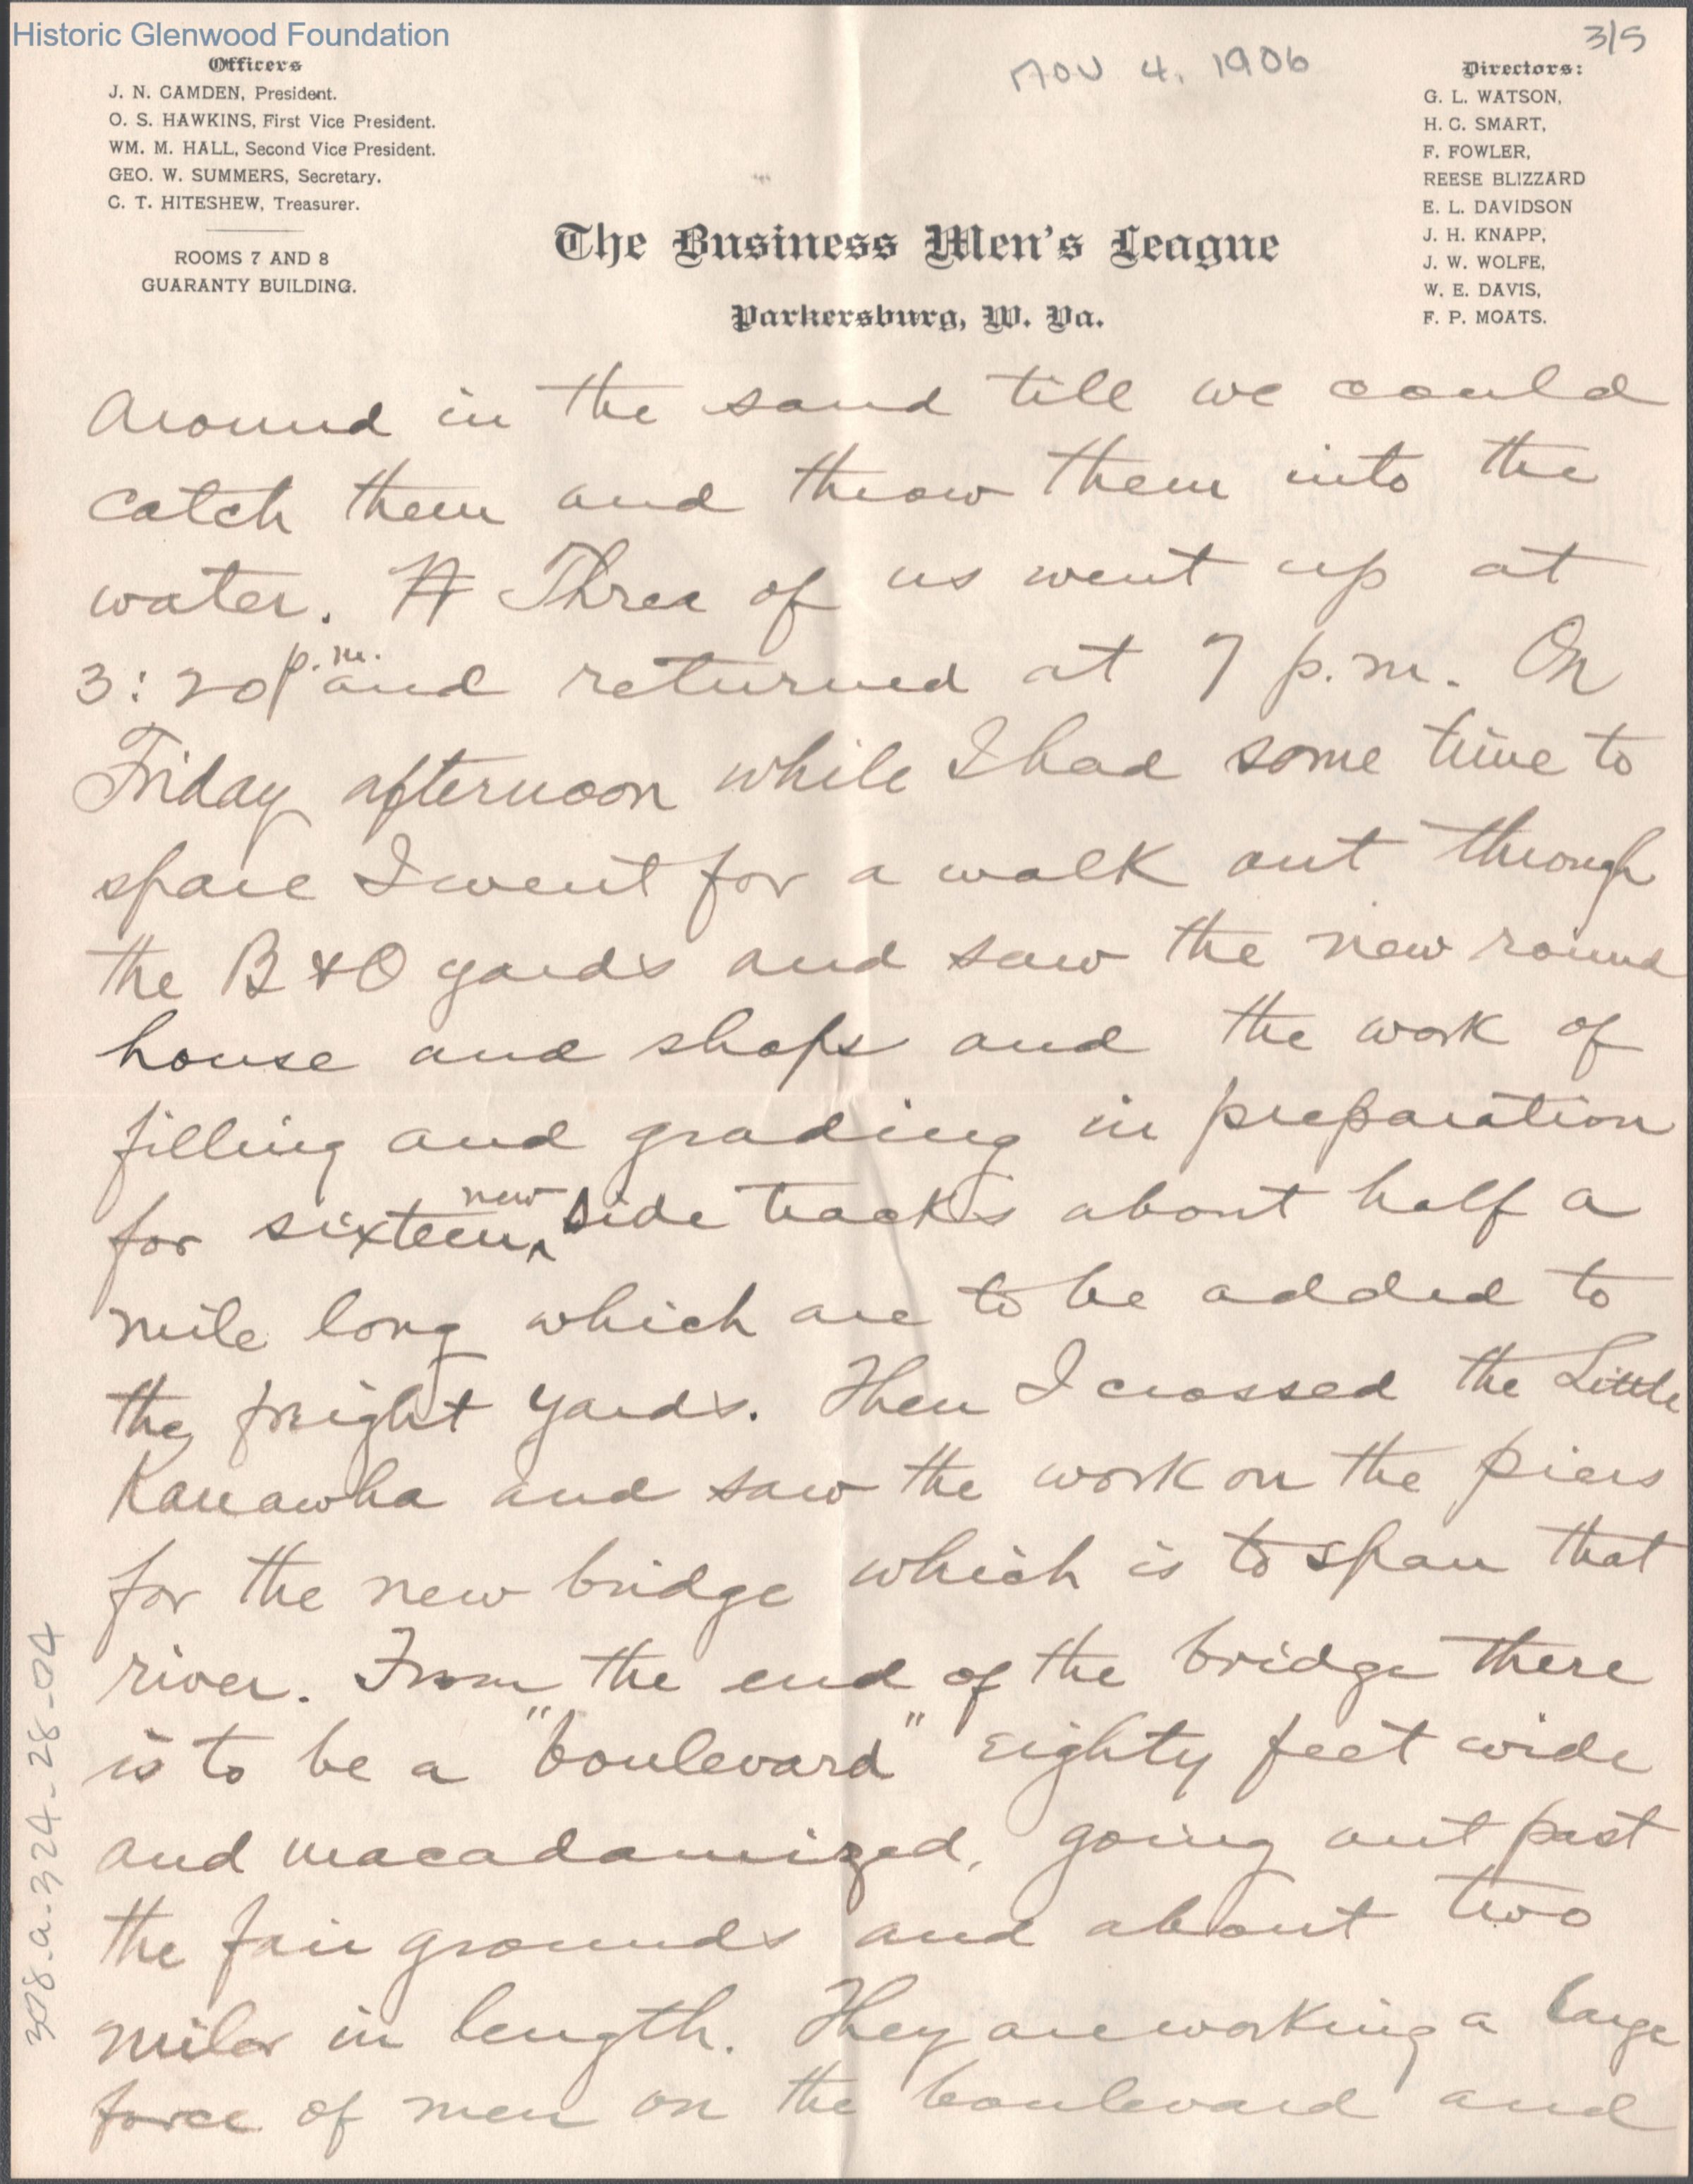 Historic Glenwood Foundation
3/5
Nov 4, 1906
Officers
J. N. CAMDEN, President.
O. S. HAWKINS, First Vice President.
WM. M. HALL, Second Vice President.
GEO. W. SUMMERS, Secretary.
C. T. HITESHEW, Treasurer.
ROOMS 7 AND 8
GUARANTY BUILDING.
Directors:
G. L. WATSON,
H. C. SMART,
F. FOWLER,
REESE BLIZZARD
E. L. DAVIDSON
J. H. KNAPP,
J. W. WOLFE,
W. E. DAVIS,
F. P. MOATS.
The Business Men's League
Parkersburg, W. Va.
around in the sand till we could
catch them and throw them into the
water. Three of us went up at
3:20 p.m. and returned at 7 p.m. On
Friday afternoon while I had some time to
spare I went for a walk out through
the B & O yards and saw the new round
house and shops and the work of
filling and grading in preparation
for sixteen new side tracks about half a
mile long which are to be added to
the freight yards. Then I crossed the Little
Kanawha and saw the work on the piers
for the new bridge which is to span that
river. From the end of the bridge there
is to be a "boulevard" eighty feet wide
and macadamized, going out past
the fair grounds and about two
miles in length. They are working a large
force of men on the boulevard and
308-a-324-28-04